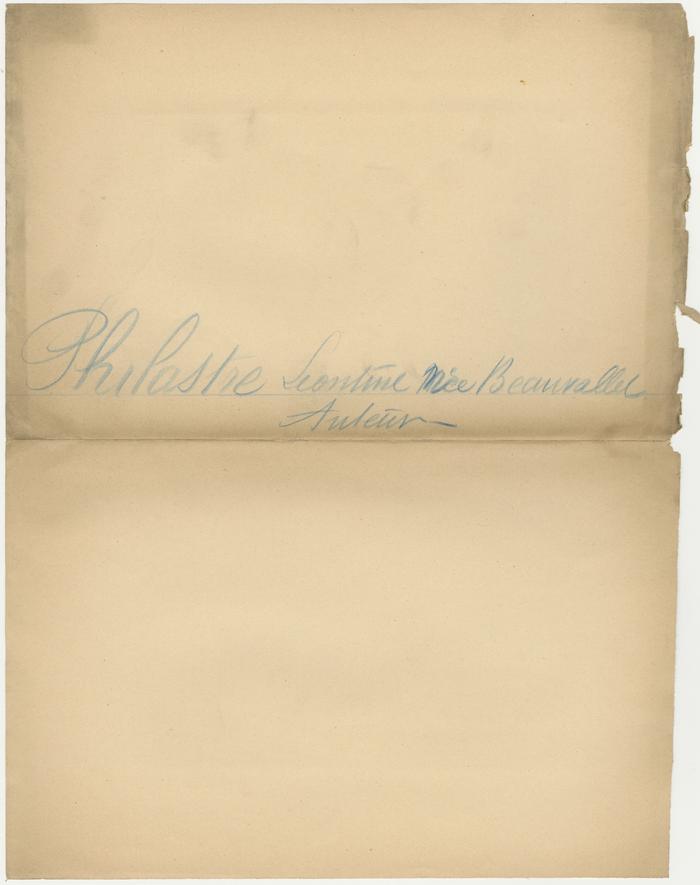 Philastre Leontine née Beauvallet
Auteur